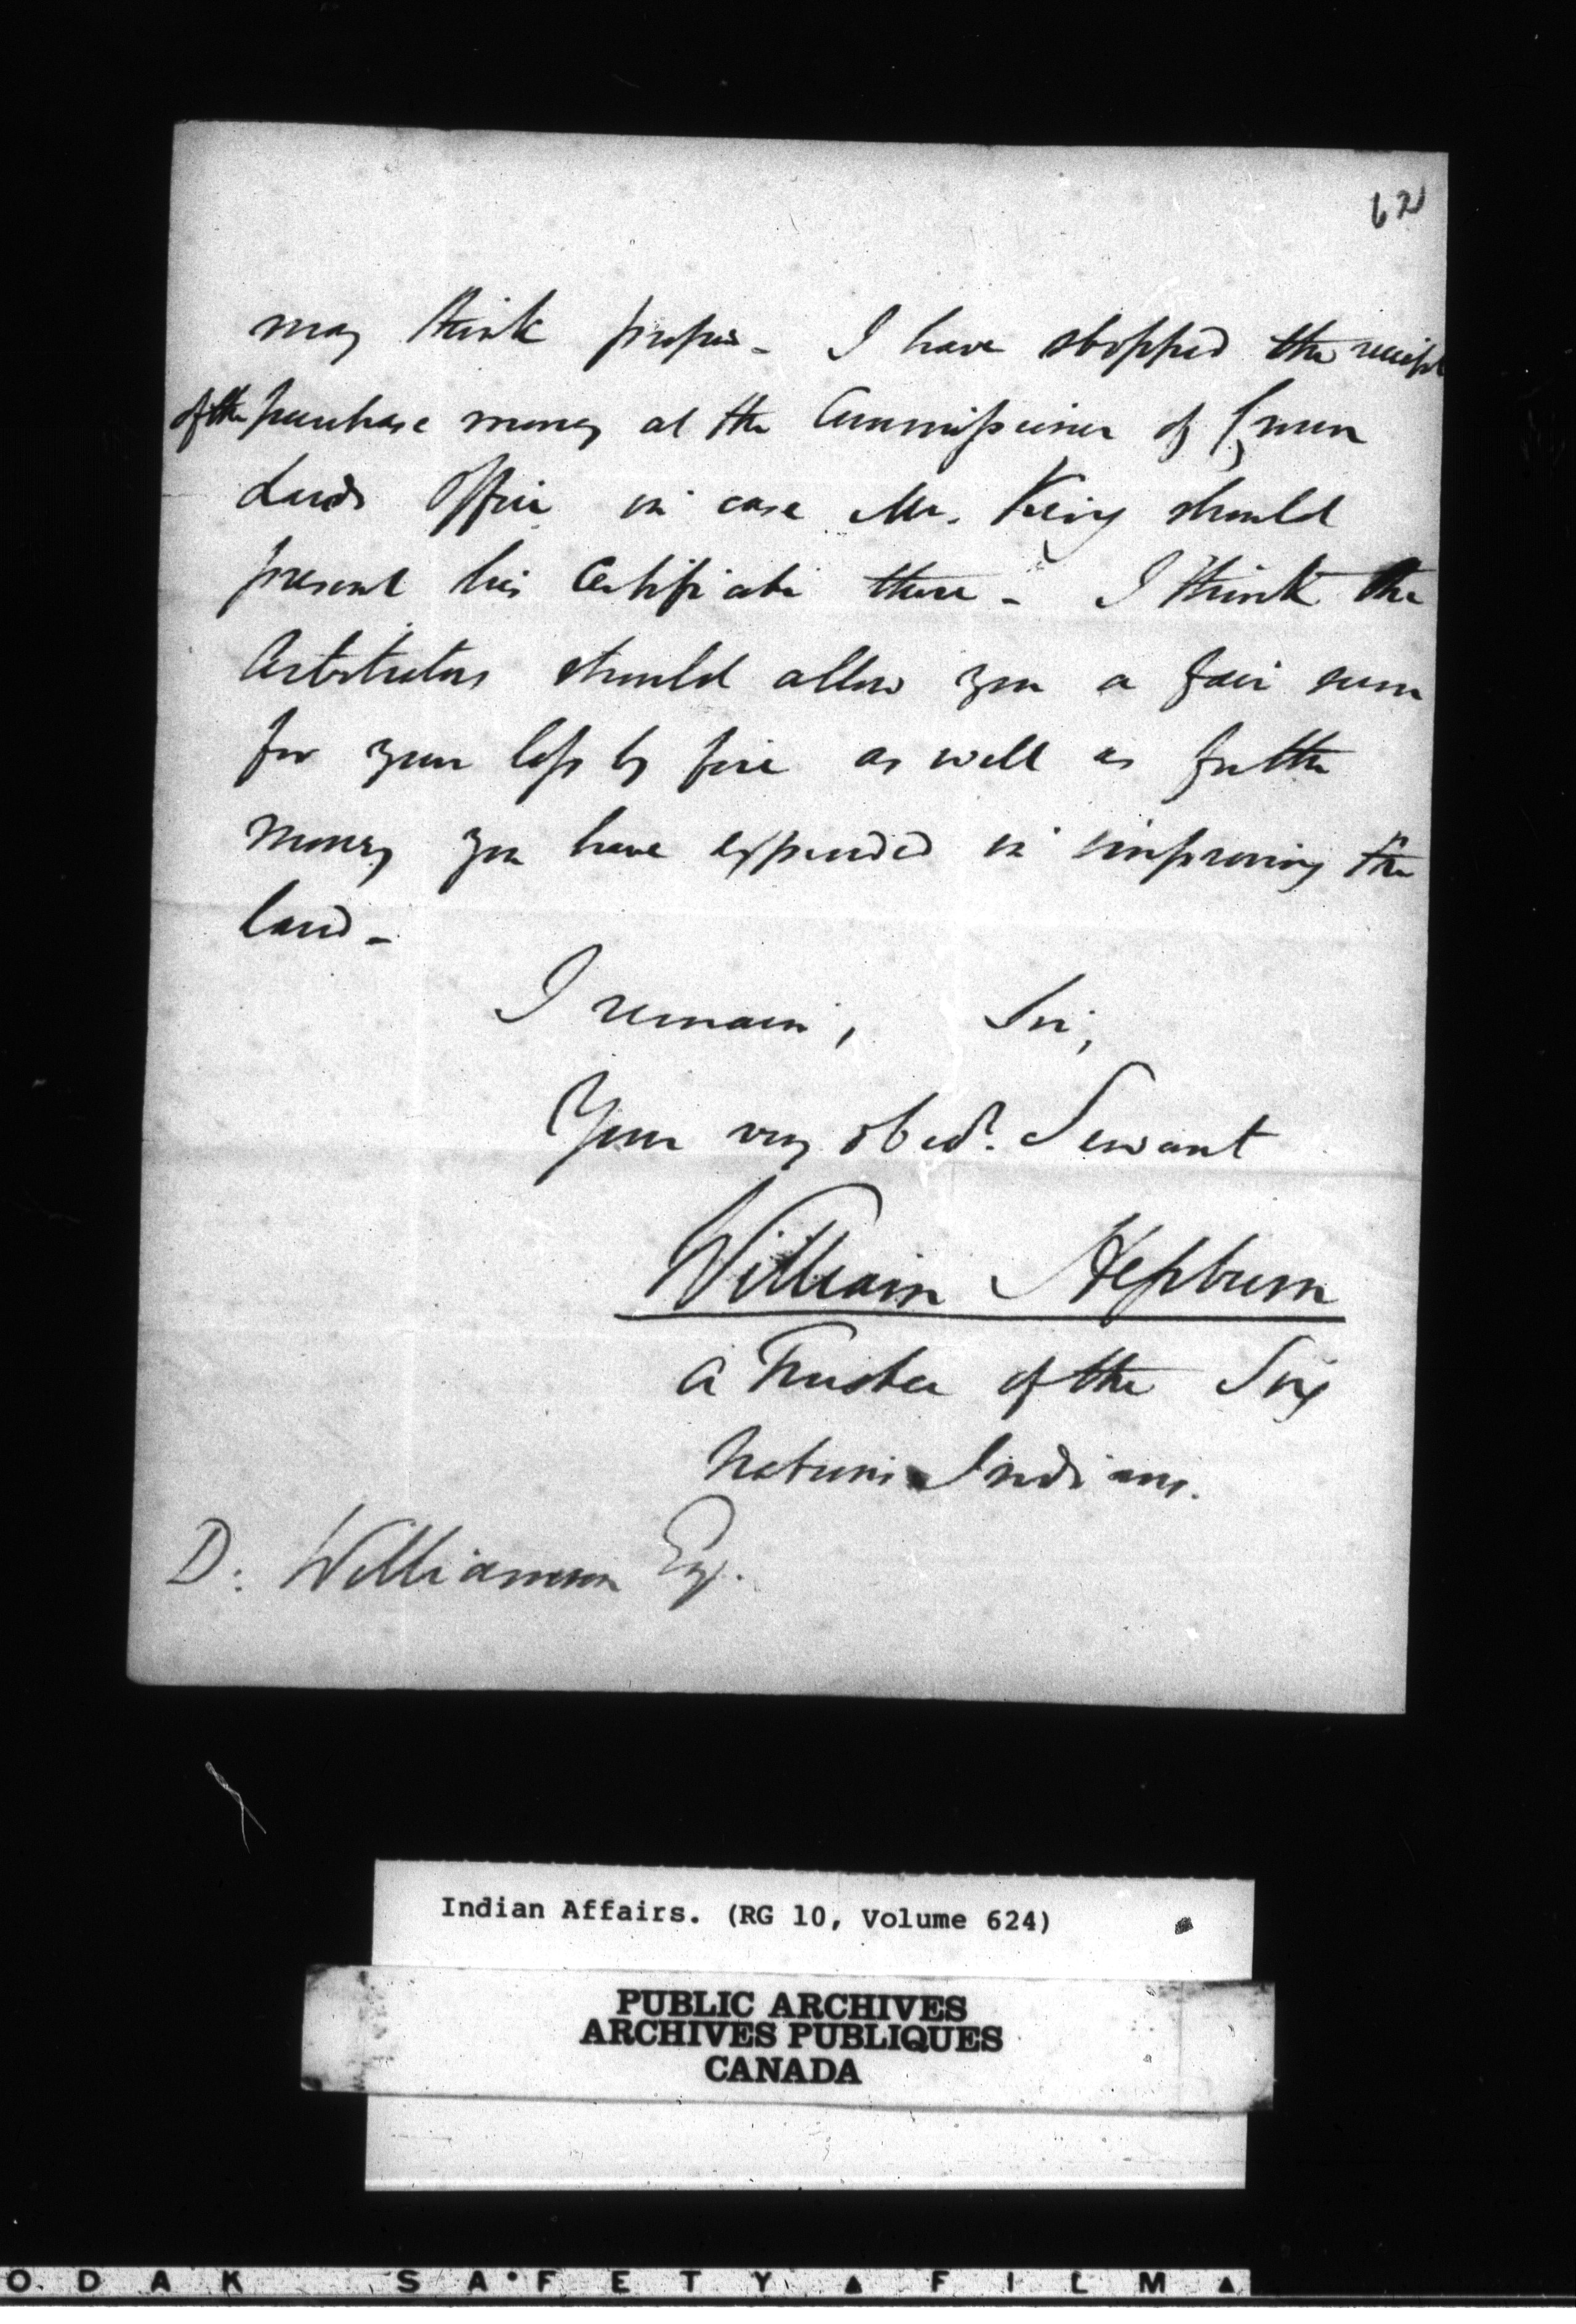 62
may think proper - I have stopped the receipt
of the purchase money at the Commissioner of Crown
Lands Office in case Mr. King should
present his Certificate there - I think the
Arbitrators should allow you a fair sum
for your loss by fire as well as for the
money you have expended in improving the
land -
I remain, Sir,
Your very obedt. Servant
William Hepburn
a Trustee of the Six
Nations Indians.
D: Williamson Esq.
Indian Affairs. (RG 10, Volume 624)
PUBLIC ARCHIVES
ARCHIVES PUBLIQUES
CANADA
ODAK SAFETY ▲ FILM ▲